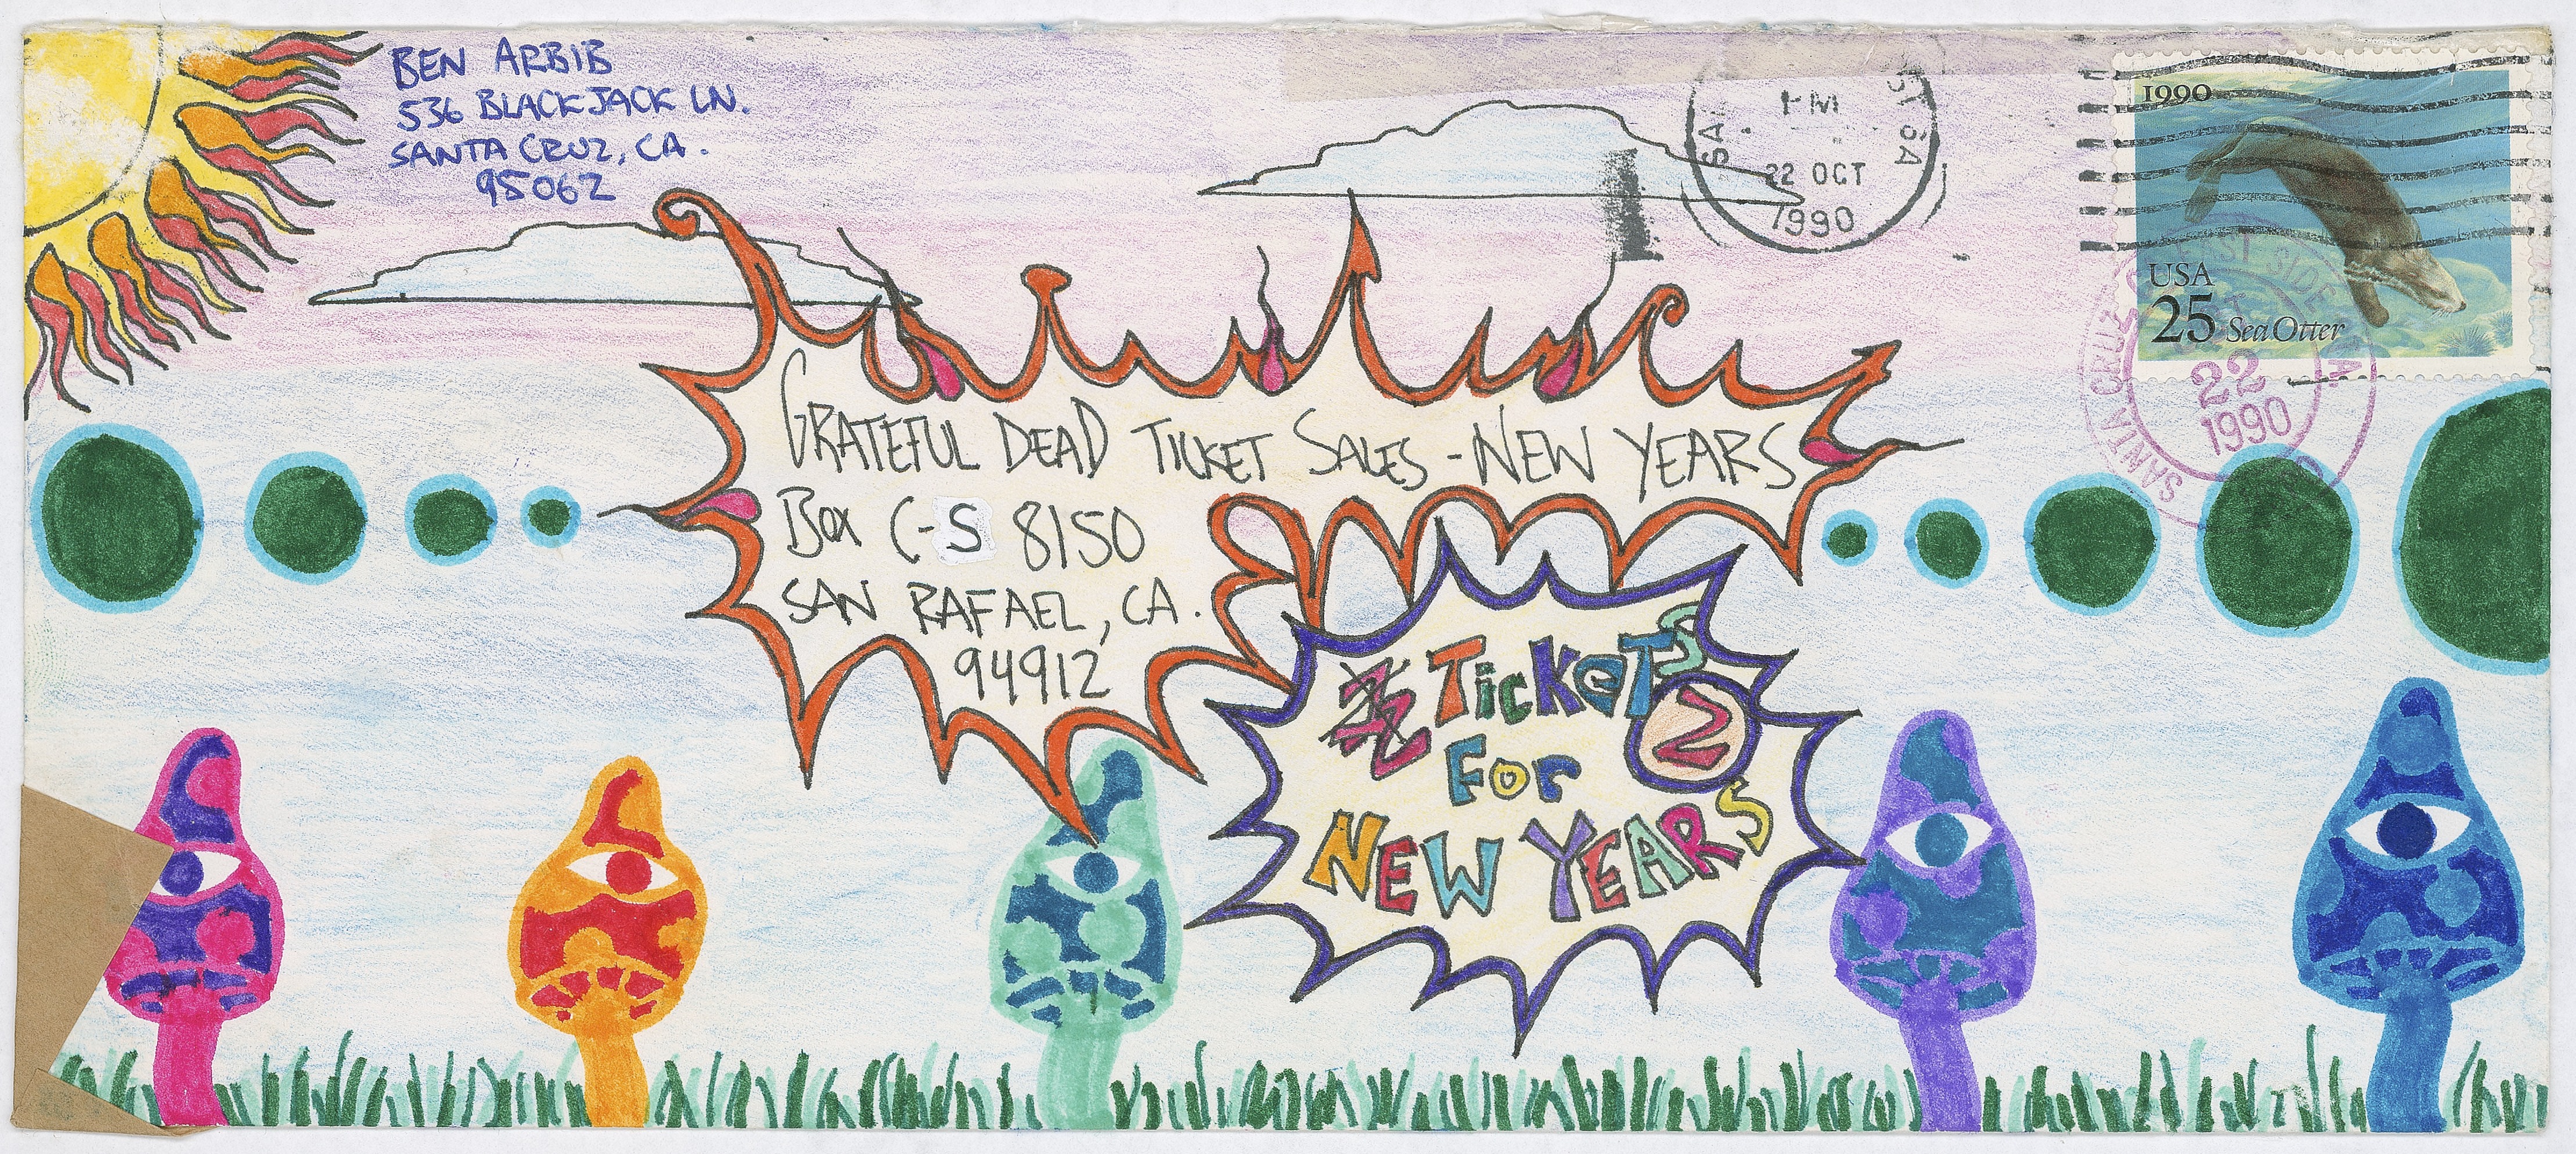 BEN ARBIB
536 BLACKJACK LN.
SANTA CRUZ, CA.
95062
PM
22 OCT
1990
1990
USA
25 Sea Otter
SANTA CRUZ
ST SIDE
22
1990
GRATEFUL DEAD TICKET SALES - NEW YEARS
BOX C-S 8150
SAN RAFAEL, CA.
94912
TickeTS
2
For
NEW YEARS